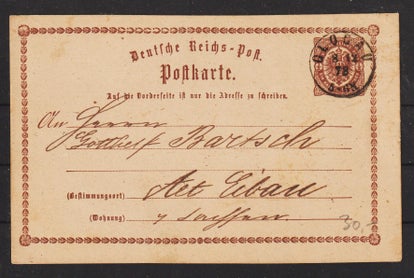 Deutsche Reichs-Post.
Postkarte.
Auf die Vorderseite ist nur die Adresse zu schreiben.
GLOGAU
An Herrn
Gottlieb Bartsch
(Bestimmungsort) Alt Eibau
(Wohnung) Sachsen
30,-